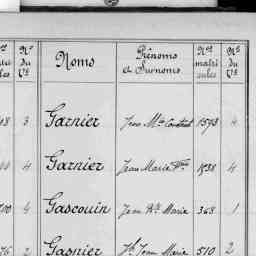 Nos N° du Vs Noms Prénoms et Surnoms Nos matri cules N° du Vs
08 3 Garnier Jean Mie 1593 4
4 Garnier Jean Marie 1538 4
4 Gascouin Jean Marie 368 1
76 2 Gasnier Jn Jean Marie 510 2